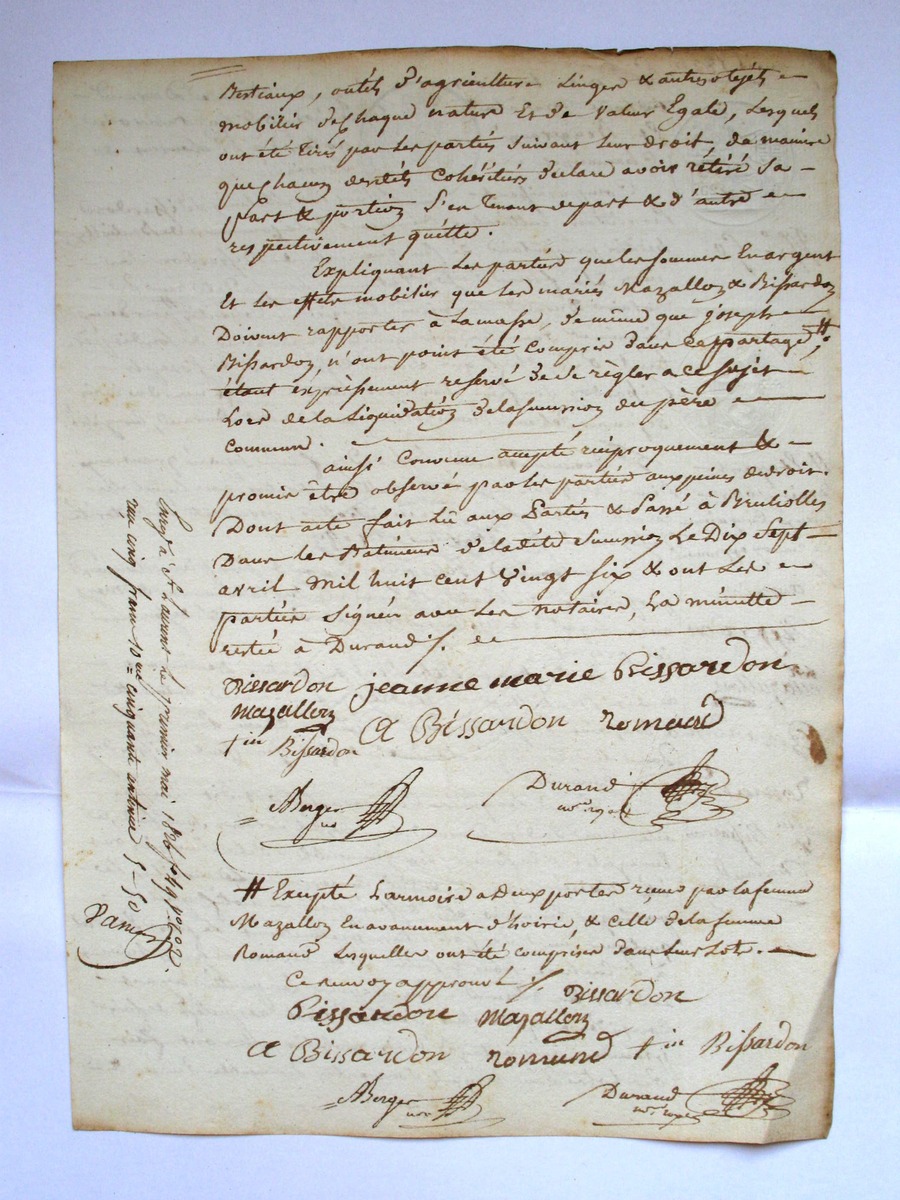 Bestiaux, outils d'agriculture Linges & autres objets
mobilier de chaque nature Et de Valeur Egale, Lesquels
ont été tirés par les parties suivant leur droit, de maniere
que chacun desdits Cohéritiers declare avoir rétiré sa
part & portion S'en tenant de part & d'autre
respectivement quitte.
Expliquant Les parties que les sommes En argent
Et les effets mobilier que les mariés Mazallon & Bissardon
Doivent rapporter à la masse, de même que joseph
Bissardon, n'ont point été Compris dans ce partage, #
étant expressement reservé de se règler a ce sujet
Lors de la Liquidation de la succession du père
commun.
ainsi Convenu accepté réciproquement &
promis être observé par les parties aux peines de droit.
Dont acte fait lû aux Parties & Passé à Brulliolles
Dans les Batimens de ladite Succession Le Dix Sept
avril mil huit cent Vingt six & ont Les
parties Signé avec Les notaires, La minutte
restée à Durand /.
Bissardon jeanne marie Bissardon
Mazallon
A Bissardon romand
+ in Bissardon
Berger
nre
Durand
nre royal
# Excepté L'armoire a Deux portes reçue par la femme
Mazallon En avancement d'hoirie, & Celle de la femme
Romand Lesquelles ont été comprises dans Leur Lots.
Ce renvoy approuvé /.
Bissardon
Bissardon Mazallon
A Bissardon romand + in Bissardon
Berger
nre
Durand
nre royal
Enregé à St Laurent le premier mai 1826 fo 49 Vo Co 2.
reçu cinq francs 10me cinquante centimes 5-50